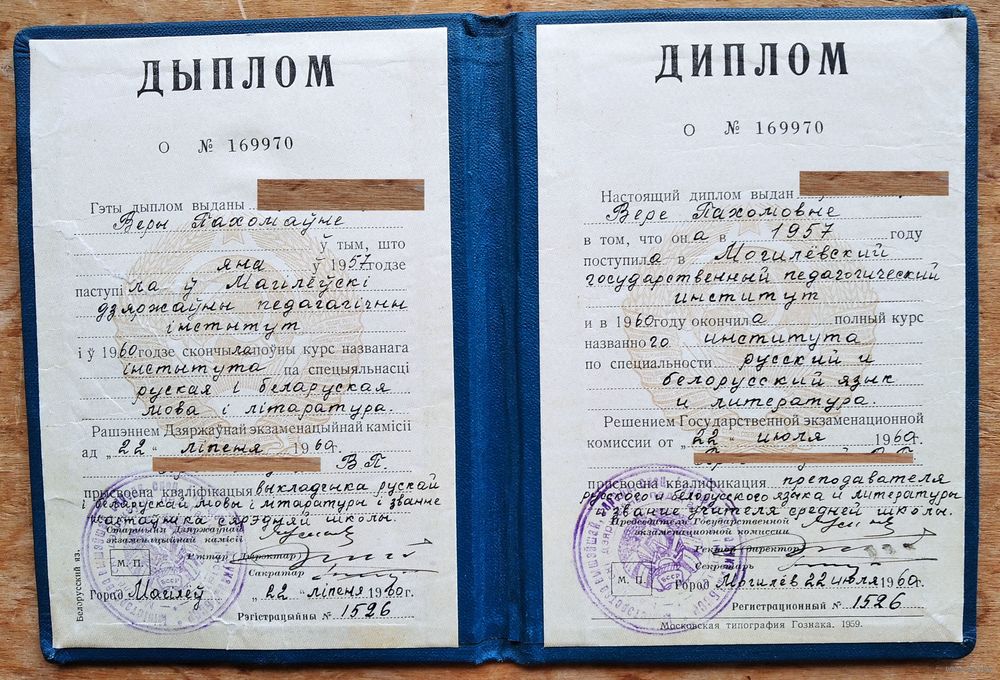 ДЫПЛОМ
О № 169970
Гэты дыплом выданы
Веры Пахомаўне
ў тым, што
яна ў 1957 годзе
паступіла ў Магілёўскі
дзяржаўны педагагічны
інстытут
і ў 1960 годзе скончыла поўны курс названага
інстытута па спецыяльнасці
руская і беларуская
мова і літаратура.
Рашэннем Дзяржаўнай экзаменацыйнай камісіі
ад „22" ліпеня 1960 г.
В П.
прысвоена кваліфікацыя выкладчыка рускай
і беларускай мовы і літаратуры і званне
настаўніка сярэдняй школы.
Старшыня Дзяржаўнай
экзаменацыйнай камісіі
Рэктар (Дырэктар)
Сакратар
М. П.
Горад Магілеў „22" ліпеня 1960 г.
Рэгістрацыйны № 1526
Белорусский яз.
ДИПЛОМ
О № 169970
Настоящий диплом выдан
Вере Пахомовне
в том, что она в 1957 году
поступила в Могилёвский
государственный педагогический
институт
и в 1960 году окончила полный курс
названного института
по специальности русский и
белорусский язык
и литература.
Решением Государственной экзаменационной
комиссии от „22" июля 1960 г.
присвоена квалификация преподавателя
русского и белорусского языка и литературы
и звание учителя средней школы.
Председатель Государственной
экзаменационной комиссии
Ректор (директор)
Секретарь
М. П.
Город Могилёв 22 июля 1960 г.
Регистрационный № 1526
Московская типография Гознака. 1959.